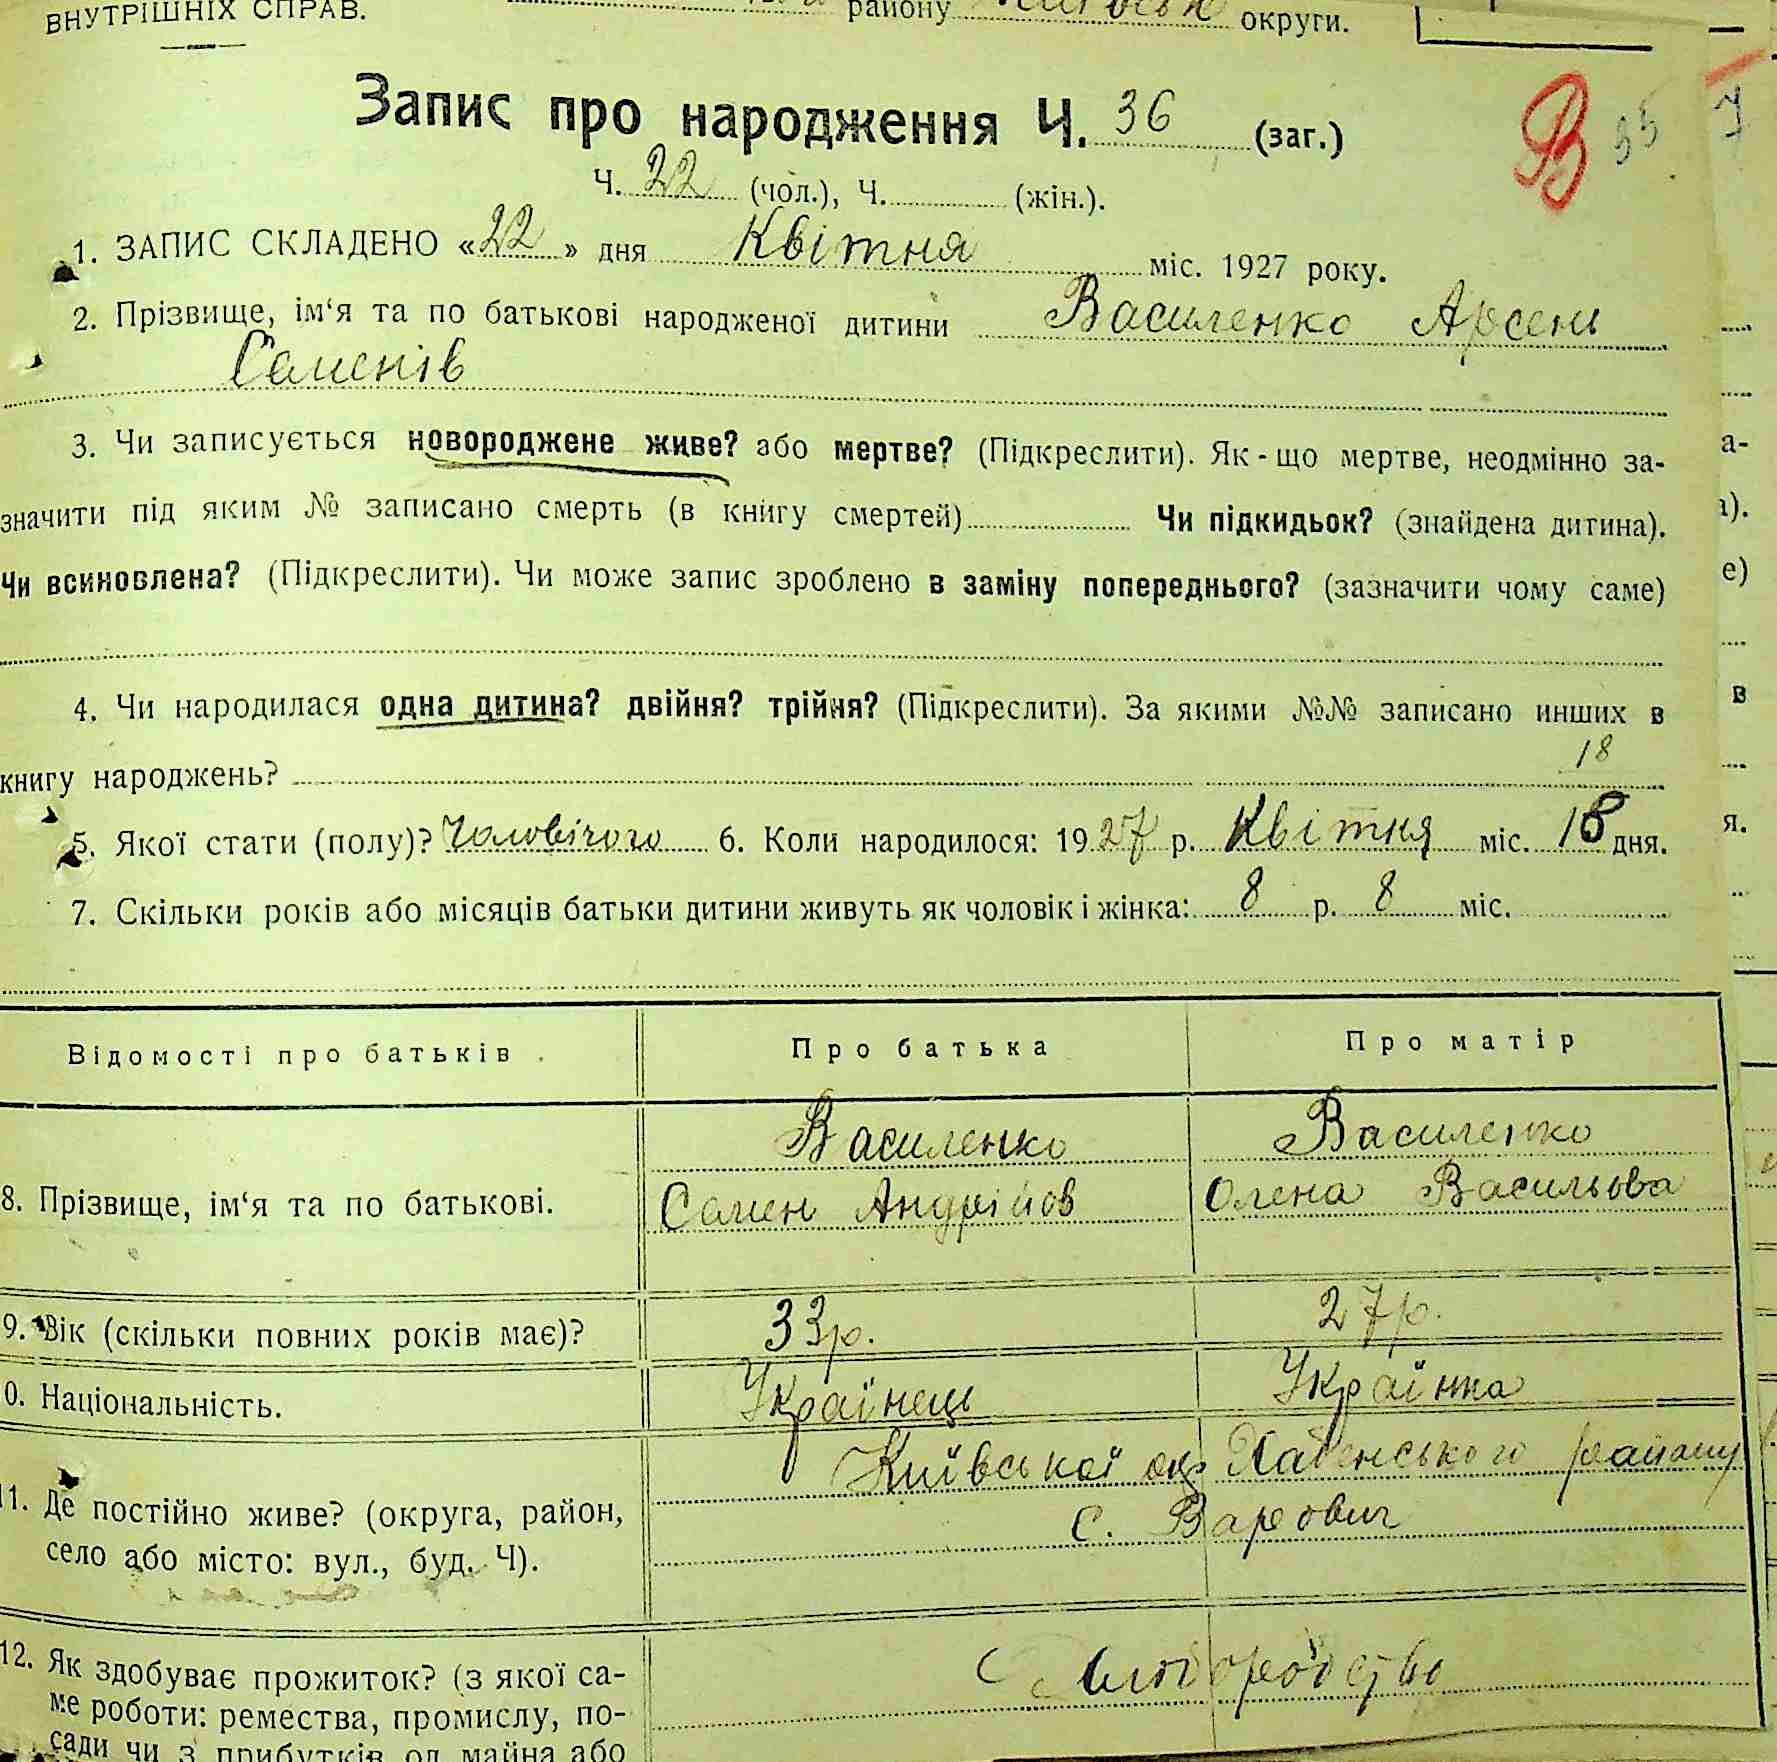 ВНУТРІШНІХ СПРАВ.
району округи.
Запис про народження Ч. 36 (заг.)
В 35
Ч. 22 (чол.), Ч. (жін.).
1. ЗАПИС СКЛАДЕНО «22» дня Квітня міс. 1927 року.
2. Прізвище, ім‘я та по батькові народженої дитини Василенко Арсень
Семенів
3. Чи записується новороджене живе? або мертве? (Підкреслити). Як-що мертве, неодмінно за-
значити під яким № записано смерть (в книгу смертей) Чи підкидьок? (знайдена дитина).
Чи всиновлена? (Підкреслити). Чи може запис зроблено в заміну попереднього? (зазначити чому саме)
4. Чи народилася одна дитина? двійня? трійня? (Підкреслити). За якими №№ записано инших в
книгу народжень?
18
5. Якої стати (полу)? Чоловічого 6. Коли народилося: 1927 р. Квітня міс. 18 дня.
7. Скільки років або місяців батьки дитини живуть як чоловік і жінка: 8 р. 8 міс.
Відомості про батьків Про батька Про матір
Василенко Василенко
8. Прізвище, ім‘я та по батькові. Семен Андрійов Олена Васильова
9. Вік (скільки повних років має)? 33р. 27р.
0. Національність. Українець Українка
Київської окр Хабенського району
11. Де постійно живе? (округа, район, с. Варович
село або місто: вул., буд. Ч).
12. Як здобуває прожиток? (з якої са-
ме роботи: ремества, промислу, по-
сади чи з прибутків од майна або